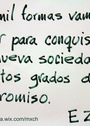 mil formas vam
r para conquis
ueva socieda
tos grados d
romiso.
E Z
.wix.com/mxch